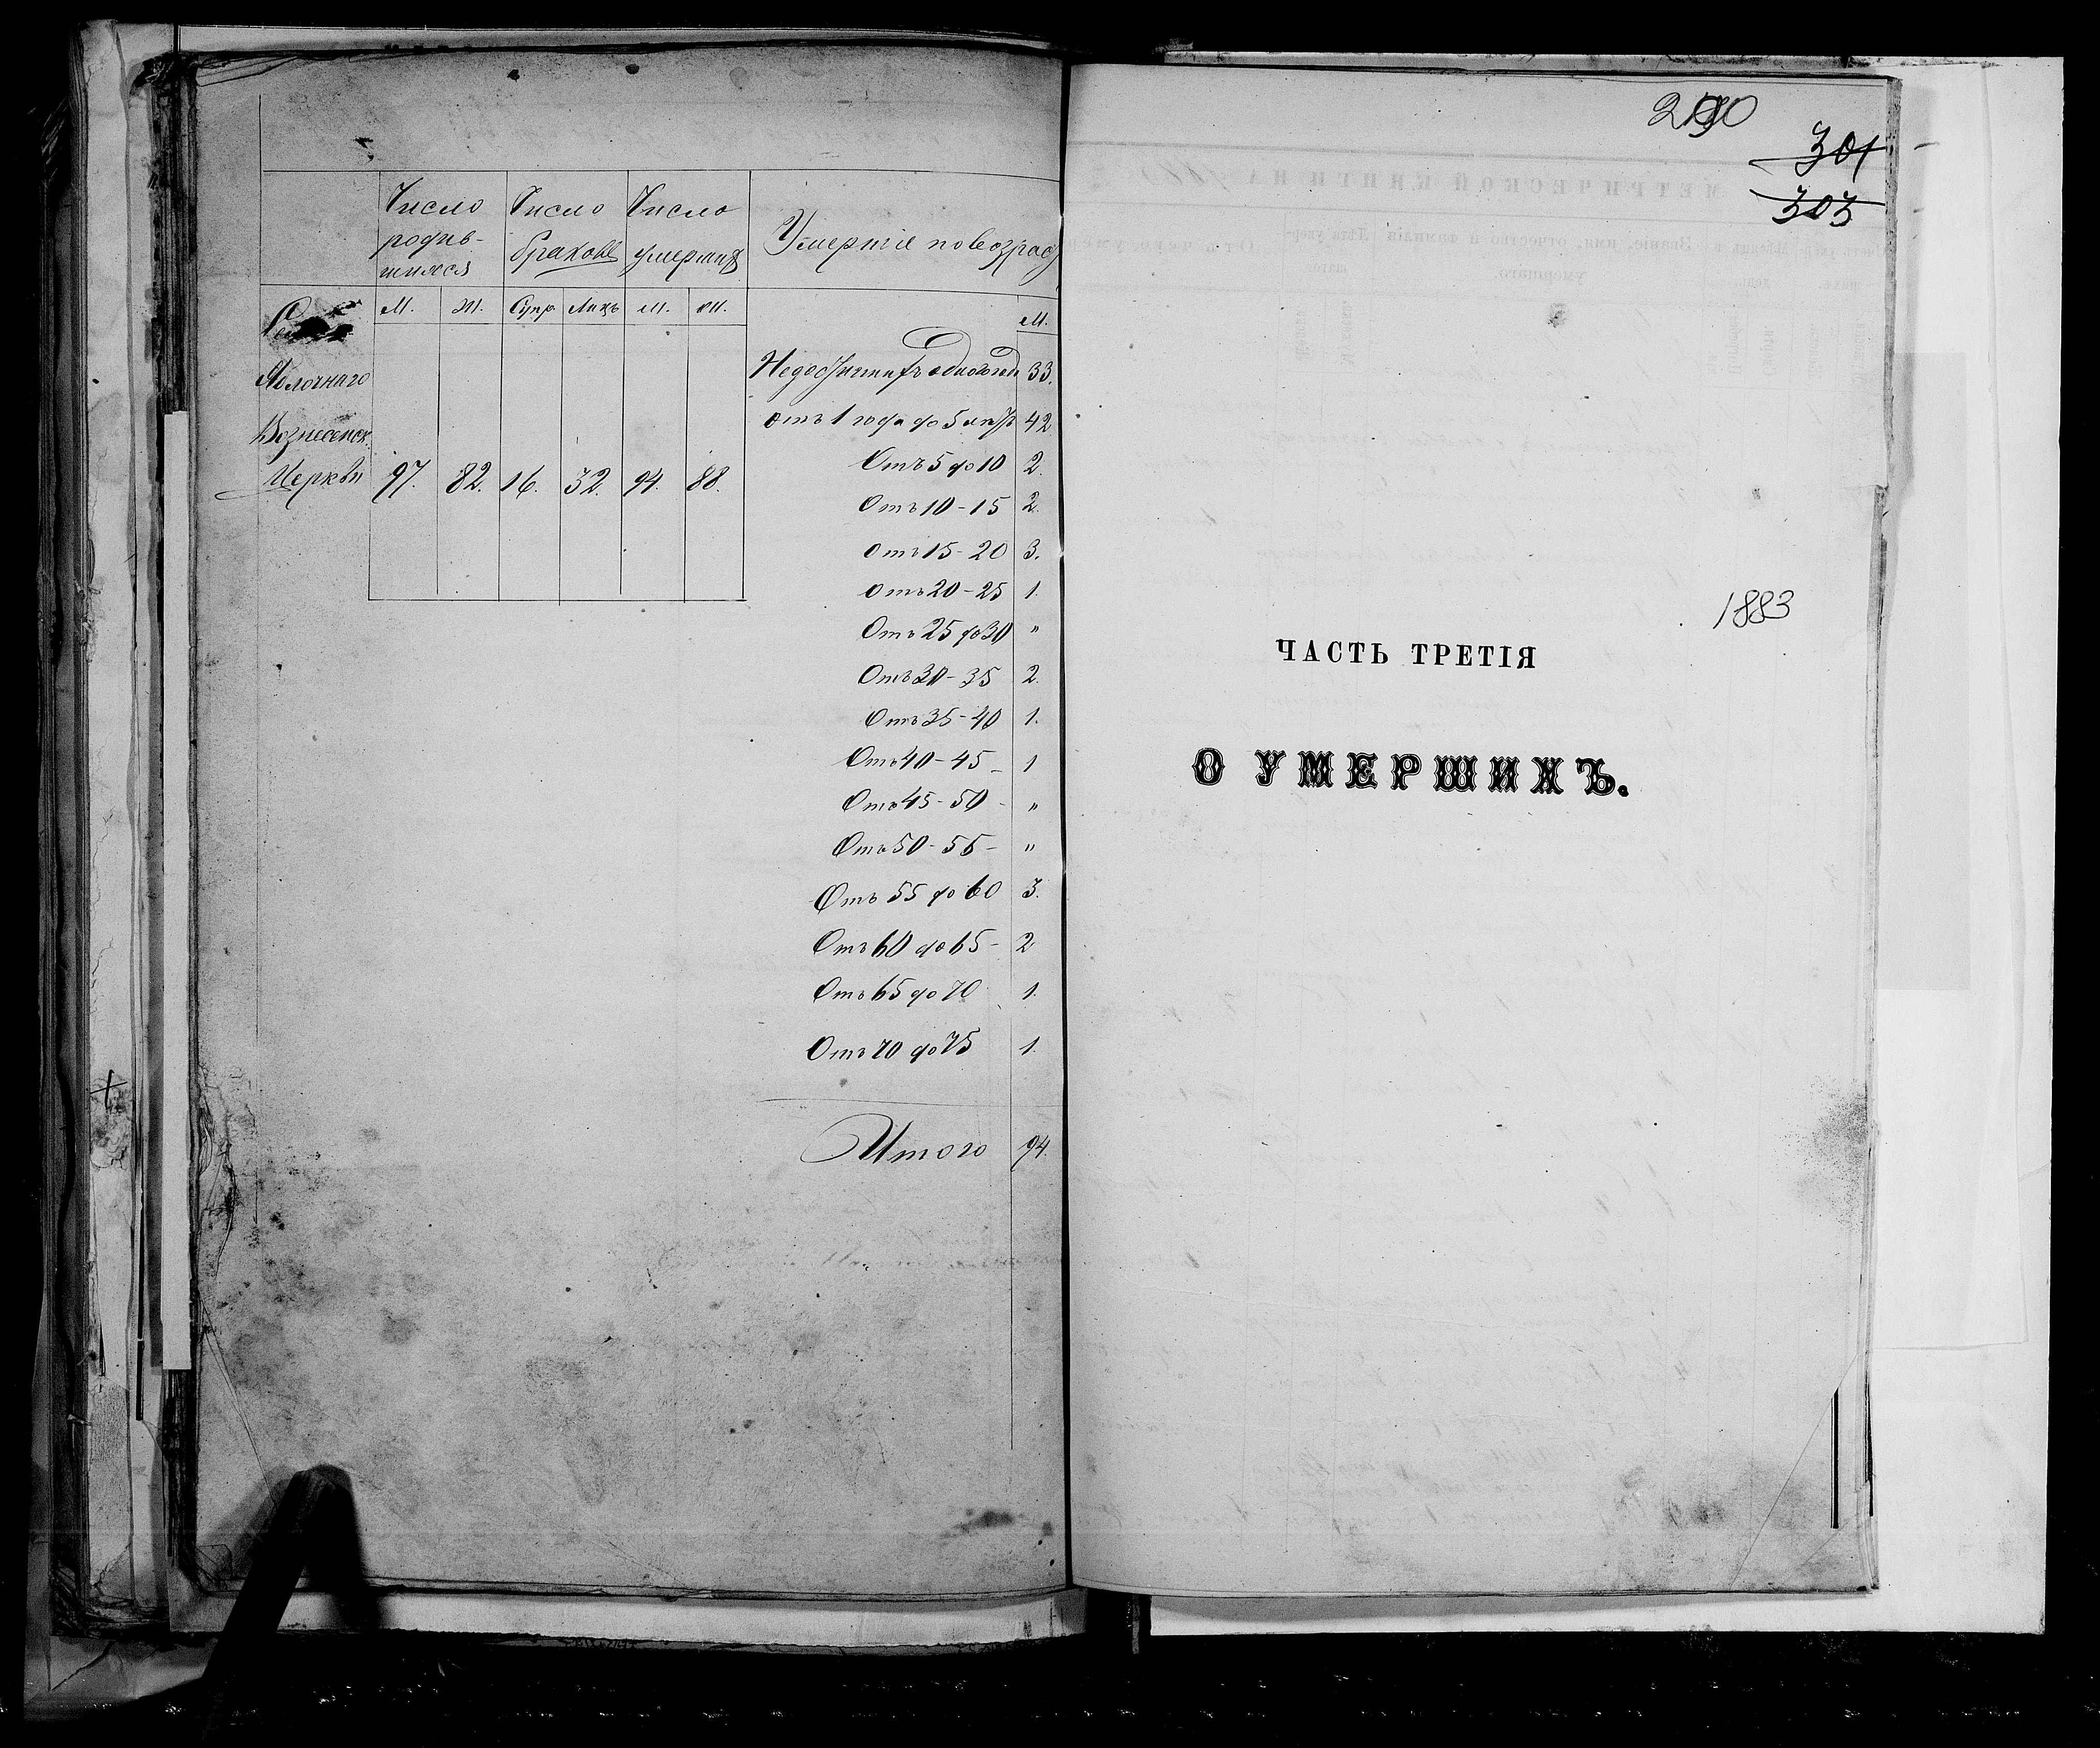 Число Число Число
родив- браковъ умершихъ Умершіе по возрас
шихся
М. Ж. Супр. Лицъ М. Ж. М.
Яблочнаго Недостигшихъ одного года 33.
Вознесенск. Отъ 1 года до 5 лѣтъ 42
Церкви 97. 82. 16. 32. 94. 88. Отъ 5 до 10 2.
Отъ 10-15 2.
Отъ 15-20 3.
Отъ 20-25 1.
Отъ 25 до 30 "
Отъ 30-35 2.
Отъ 35-40 1.
Отъ 40-45 - 1
Отъ 45-50 - "
Отъ 50-55 - "
Отъ 55 до 60 3.
Отъ 60 до 65 - 2
Отъ 65 до 70 1.
Отъ 70 до 75 1.
Итого 94.
301
303
1883
ЧАСТЬ ТРЕТІЯ
О УМЕРШИХЪ.